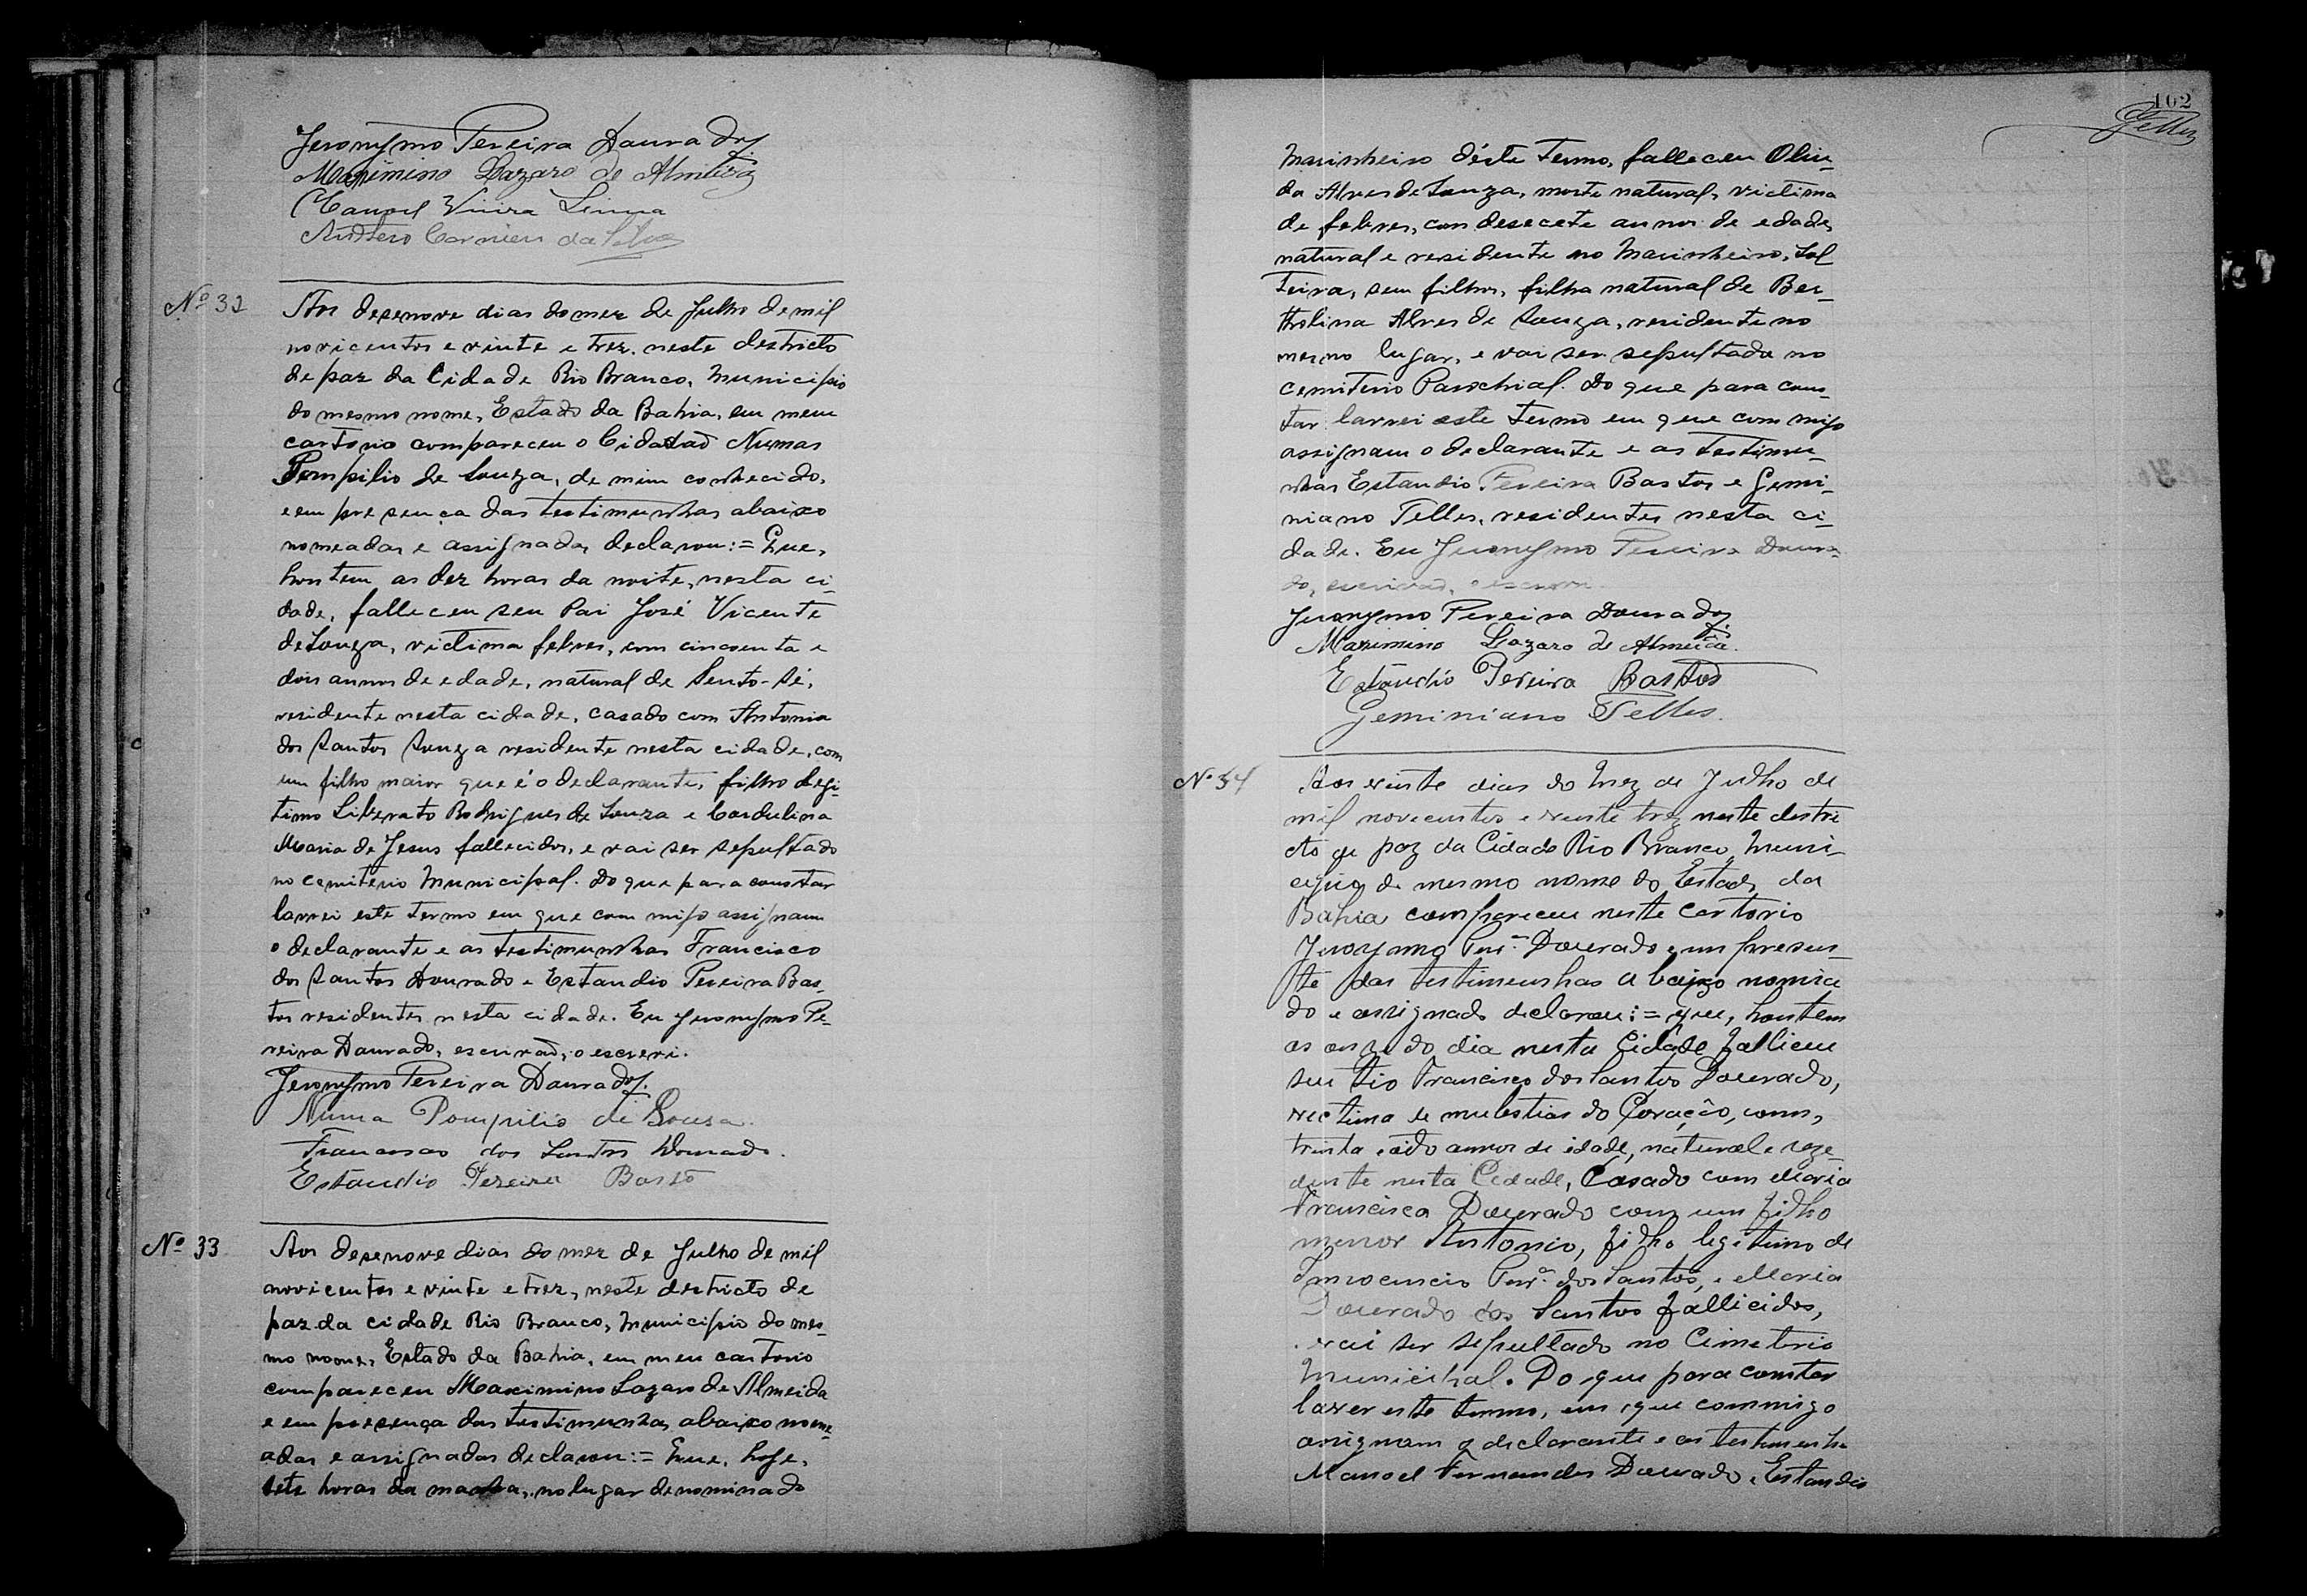 Jeronymo Pereira Dourado,
Maximino Lazaro de Almeida
Manoel Vieira Lima
Antero Carneiro da Silva
Nº 32
Aos desenove dias do mez de Julho de mil
novicentos e vinte e trez, neste destricto
de paz da Cidade Rio Branco, Municipio
do mesmo nome, Estado da Bahia, em meu
cartorio compareceu o Cidadão Numas
Pompilio de Souza, de mim conhecido,
e em presença das testimunhas abaixo
nomeadas e assignadas declarou:= Que,
hontem as dez horas da noite, nesta ci-
dade, falleceu seu Pai José Vicente
de Souza, victima febres, com cincoenta e
dois annos de edade, natural de Sento-Sé,
residente nesta cidade, casado com Antonia
dos Santos Souza residente nesta cidade, com
um filho maior que é o declarante, filho legi-
timo Liberato Rodrigues de Souza e Cordulina
Maria de Jesus fallecidos, e vai ser sepultado
no cemiterio Municipal. Do que para constar
lavrei este termo em que com migo assignam
o declarante e as testimunhas Francisco
dos Santos Dourado e Estandio Pereira Bas-
tos residentes nesta cidade. Eu Jeronymo Pe-
reira Dourado, escrivão, o escrevi.
Jeronymo Pereira Dourado,
Numa Pompilio de Souza
Francisco dos Santos Dourado.
Estandio Pereira Bastos
Nº 33
Aos desenove dias do mez de Julho de mil
novicentos e vinte e trez, neste destricto de
paz da cidade Rio Branco, Municipio do mes-
mo nome, Estado da Bahia, em meu cartorio
compareceu Maximino Lazaro de Almeida
e em presença das testimunhas abaixo nome-
adas e assignadas declarou:= Que, hoje,
sete horas da manha, no lugar denominado
102
Telles
Marinheiro déste Termo, falleceu Olin-
da Alves de Souza, morte natural, victima
de febres, com desecete annos de edade,
natural e residente no Marinheiro, Sol
teira, sem filhos, filha natural de Ber-
tholina Alves de Souza, residente no
mesmo lugar, e vai ser sepultada no
cemiterio Parochial. Do que para cons-
tar lavrei este termo em que com migo
assignam o declarante e as testimu-
nhas Estandio Pereira Bastos e Gemi-
niano Telles, residentes nesta ci-
dade. Eu Jeronymo Pereira Doura-
do, escrivão, o escrevi.
Jeronymo Pereira Dourado,
Maximino Lazaro de Almeida.
Estandio Pereira Bastos
Geminiano Telles.
Nº 34
Aos vinte dias do Mez de Julho de
mil novecentos e vinte trez neste destri
cto de paz da Cidade Rio Branco, Muni-
cipio de mesmo nome do Estado da
Bahia compareceu neste Cartorio
Jeronymo Perª Dourado e em presen-
te das testimunhas a baixo nomia
do e assignado declarou:= que, hontem
as onze do dia nesta Cidade falliceu
seu tio Francisco dos Santos Dourado,
victima de mulestias do Coração, com,
trinta e oito annos de idade, natural e reze-
dente nesta Cidade, Casado com Maria
Francisca Dourado com um filho
menor Antonio, filho legitimo de
Innocencio Perª dos Santos, e Maria
Dourado dos Santos fallicidos,
vai ser sepultado no Cimeterio
Municipal. Do que para constar
laver este termo, em que commigo
assignam o declarante e as testimunha
Manoel Fernandes Dourado, Estandio